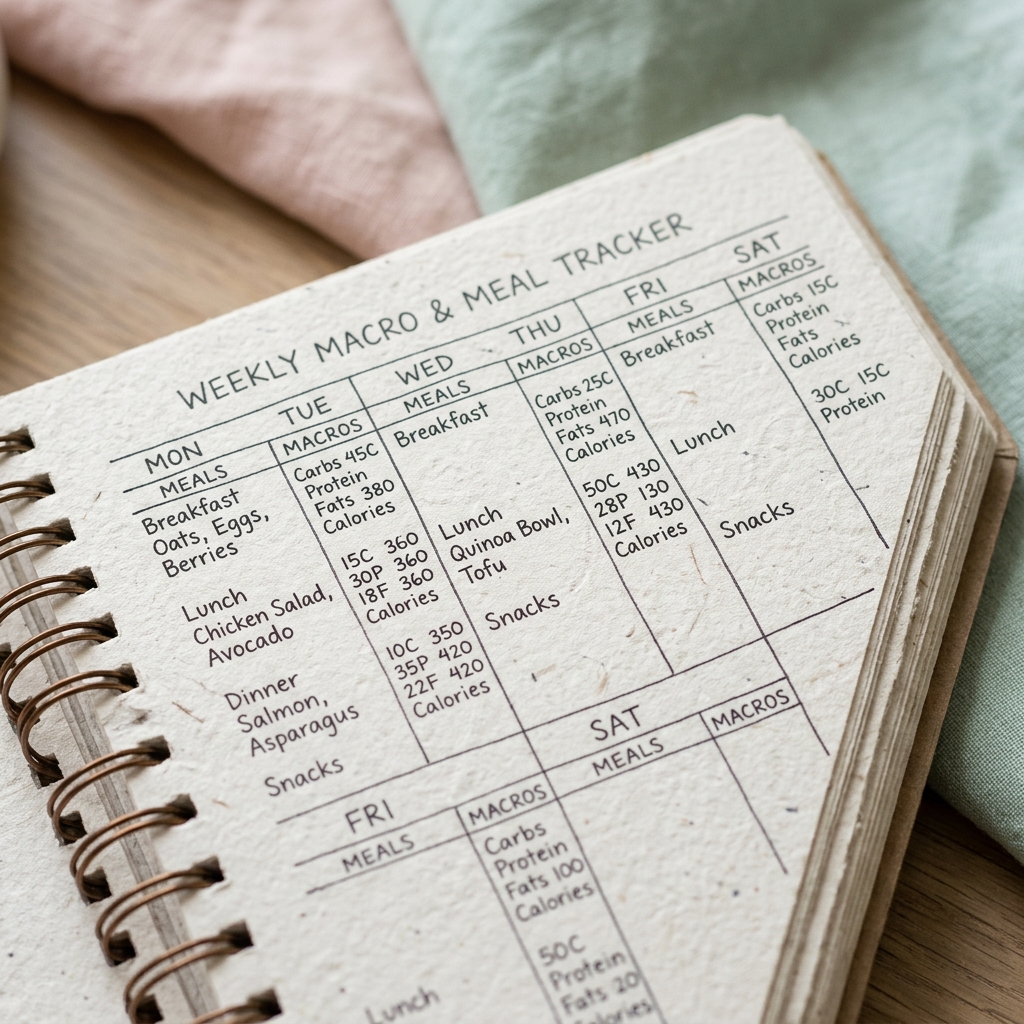 WEEKLY MACRO & MEAL TRACKER
MON TUE WED THU FRI SAT
MEALS MACROS MEALS MACROS MEALS MACROS
Breakfast
Oats, Eggs,
Berries
Lunch
Chicken Salad,
Avocado
Dinner
Salmon,
Asparagus
Snacks
Carbs 45C
Protein
Fats 380
Calories
15C 360
30P 360
18F 360
Calories
10C 350
35P 420
22F 420
Calories
Breakfast
Lunch
Quinoa Bowl,
Tofu
Snacks
Carbs 25C
Protein
Fats 470
Calories
50C 430
28P 130
12F 430
Calories
Breakfast
Lunch
Snacks
Carbs 15C
Protein
Fats
Calories
30C 15C
Protein
FRI SAT
MEALS MACROS MEALS MACROS
Lunch
Carbs
Protein
Fats 100
Calories
50C
Protein
Fats 20
Calories